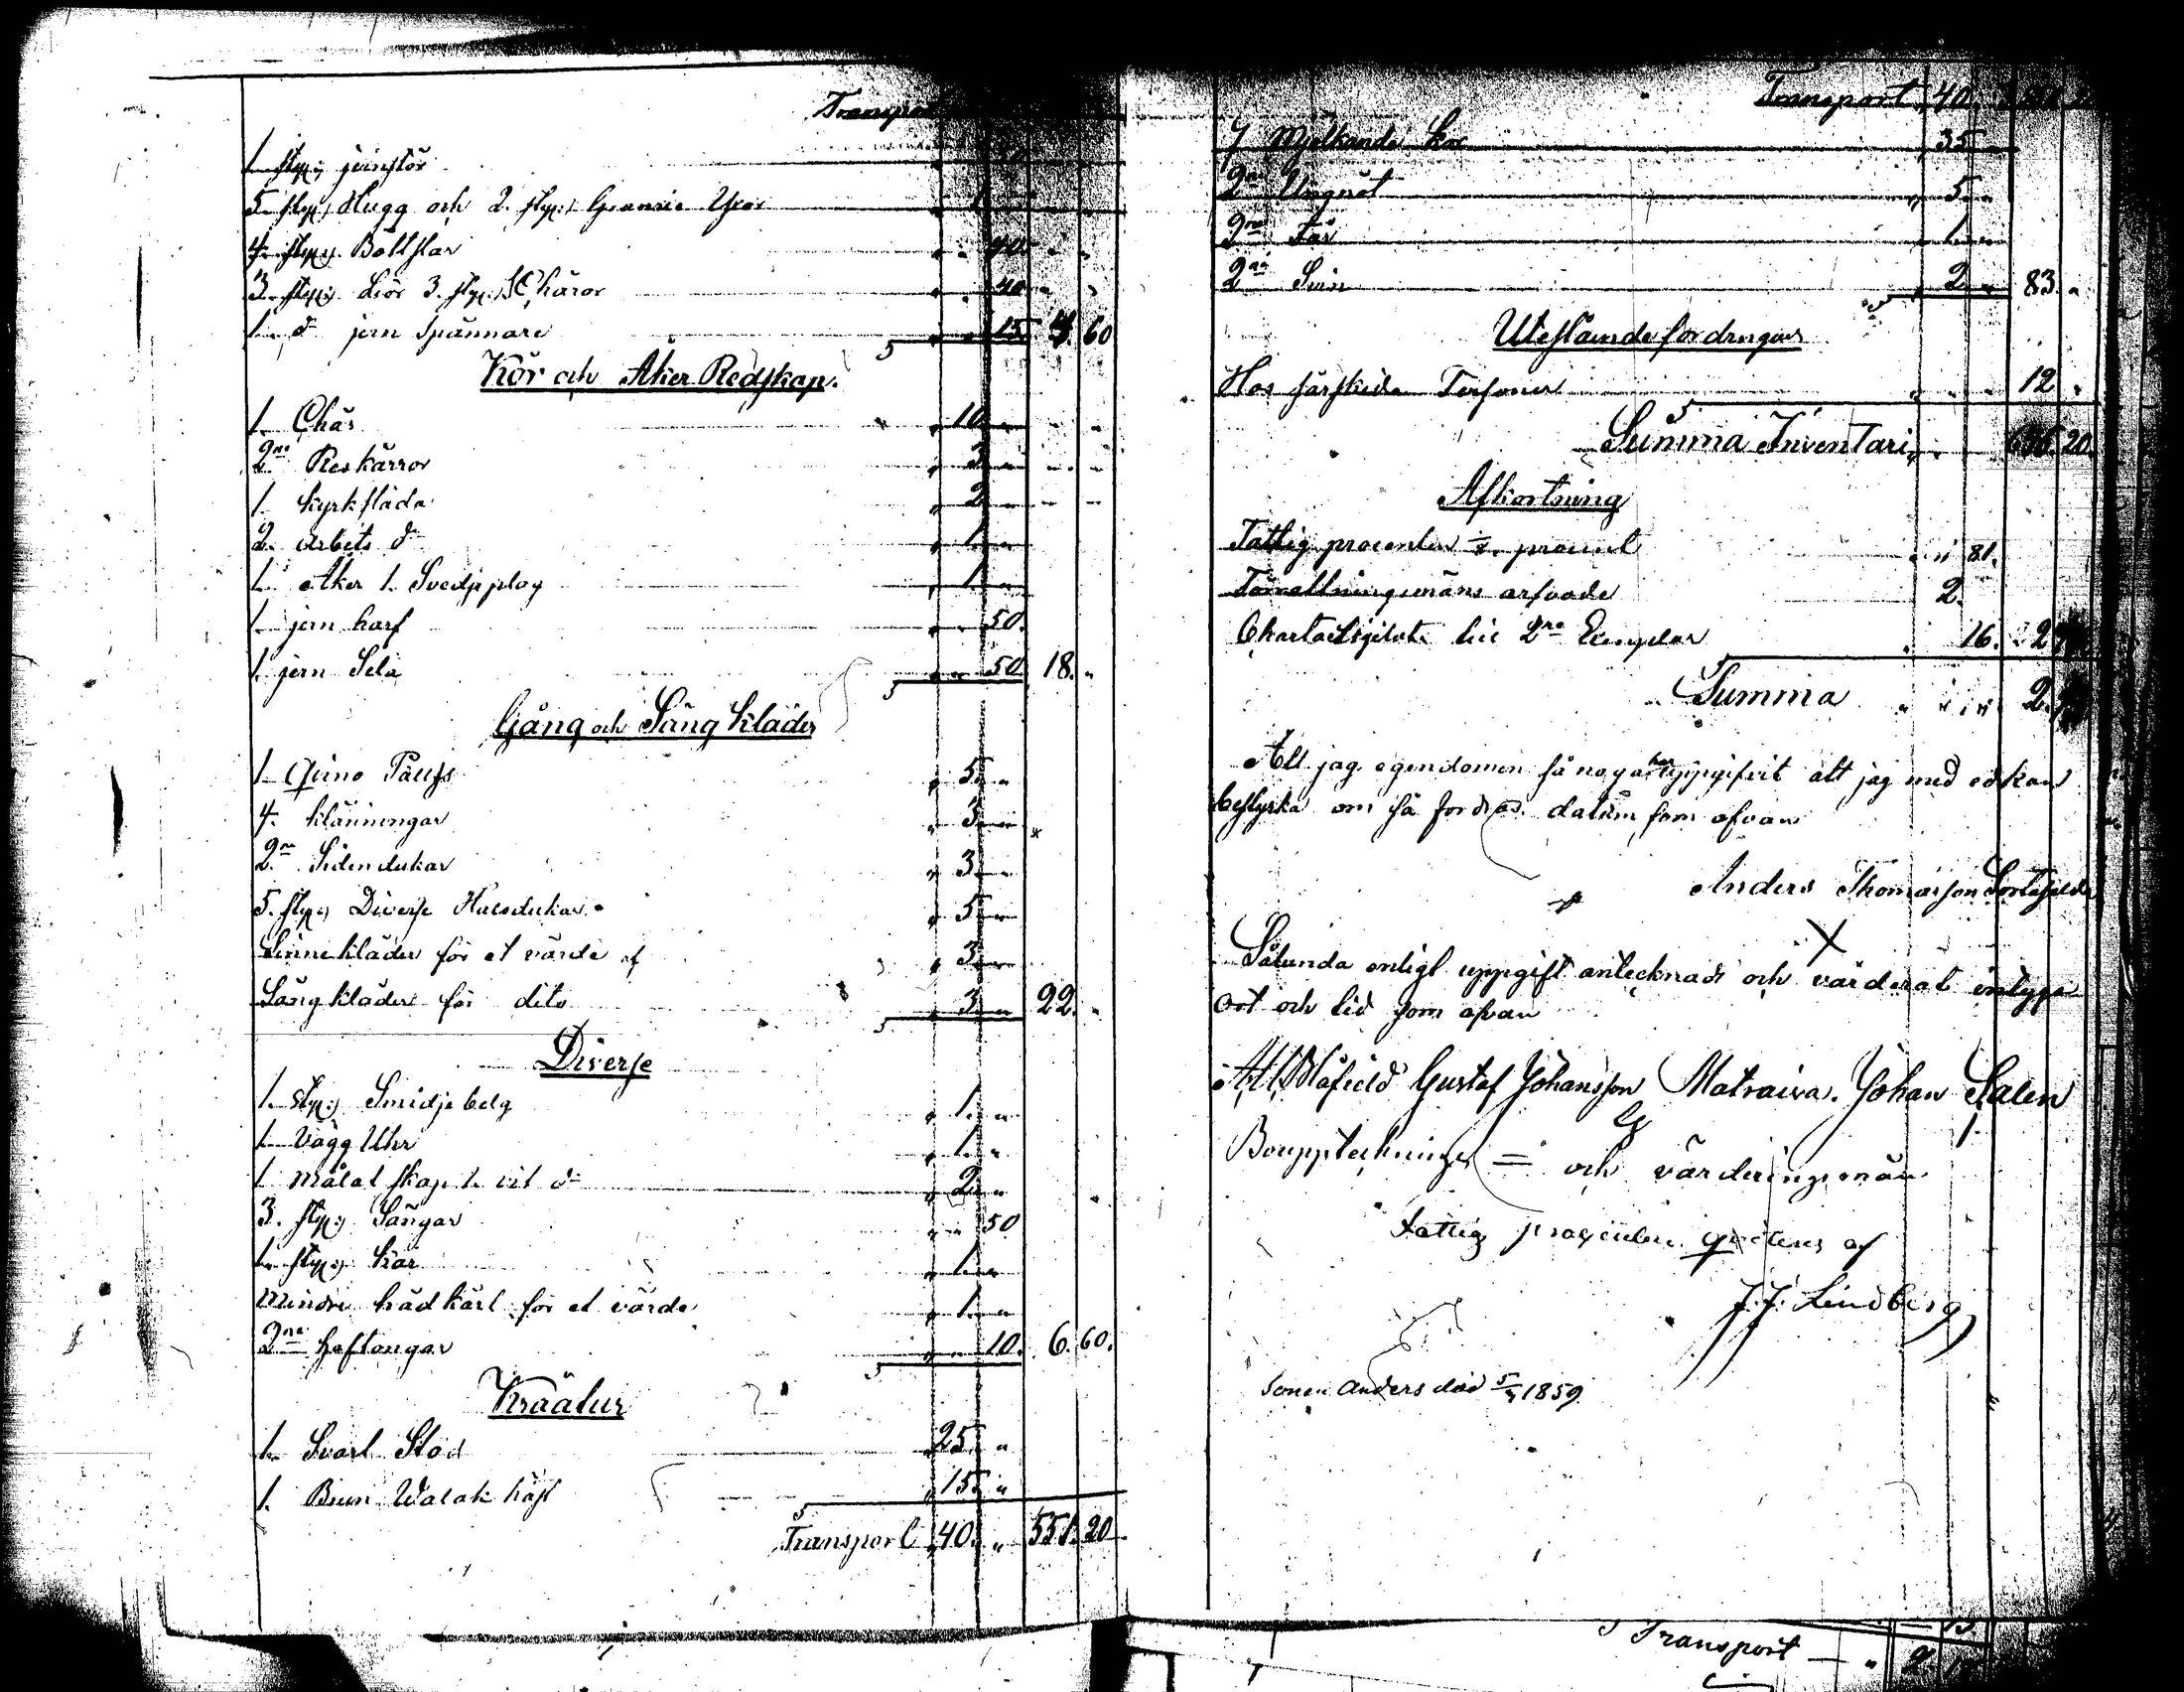 Transport
1 styck: jernstör 50
5 styck: Hugg och 2. styck: Yxor 1
4 styck: 40
3 styck: Liör 3. styck: Skäror 40
1 d:o jern Spännare 15. 4. 60
Kör och Åker Redskap.
1. Chäs 10
2ne Reskärror 3
1. Kyrksläda 2
2. Arbets d:o 1
1. Åker 1. Svedjeplog 1
1. jern harf 50.
1. jern Sela 50 18.
Gång och Säng Kläder
1 Päls 5
4. klänningar 3
2ne Sidendukar 3
5. styck: Diverse Halsdukar 5
Linnekläder för et värde af 3
Sängkläder för dito 3 22.
Diverse
1. styck: Smidje belg 1
1 Vägg Uhr 1
1 målat skåp 1. d:o 2
3. styck: Sängar 50
1. styck: kar 1
Mindre träd kärl för et värde 1
2ne haftångar 10. 6. 60.
Kreatur
1. Svart Sto 25
1. Brun Walak häst 15
Transport 40. 551. 20
Transport 40
7 Mjölkande kor 35
2ne Ungnöt 5
Får 1
2ne Svin 2 83
Utestående fordringar
Hos särskilda Personer 12
Summa Inventari 20.
Afkortning
Fattig procenten procent 81.
Förrättningsmäns arfvode 2.
Chartæ Sigilat. till 2ne Exemplar 16. 2
Summa 2.
Att jag egendomen så noga har uppgifvit att jag med ed kan
bestyrka om så fordras. datum som ofvan
Anders Thomasson
X
Sålunda enligt uppgift antecknadt och värderat intyga
ort och tid som ofvan
Gustaf Johansson Matraiva. Johan Salen
Bouppteknings = och värderingsmän
Fattig procenten qvitteras af
J. J. Lindberg
Sonen Anders död 5/4 1859
Transport 2